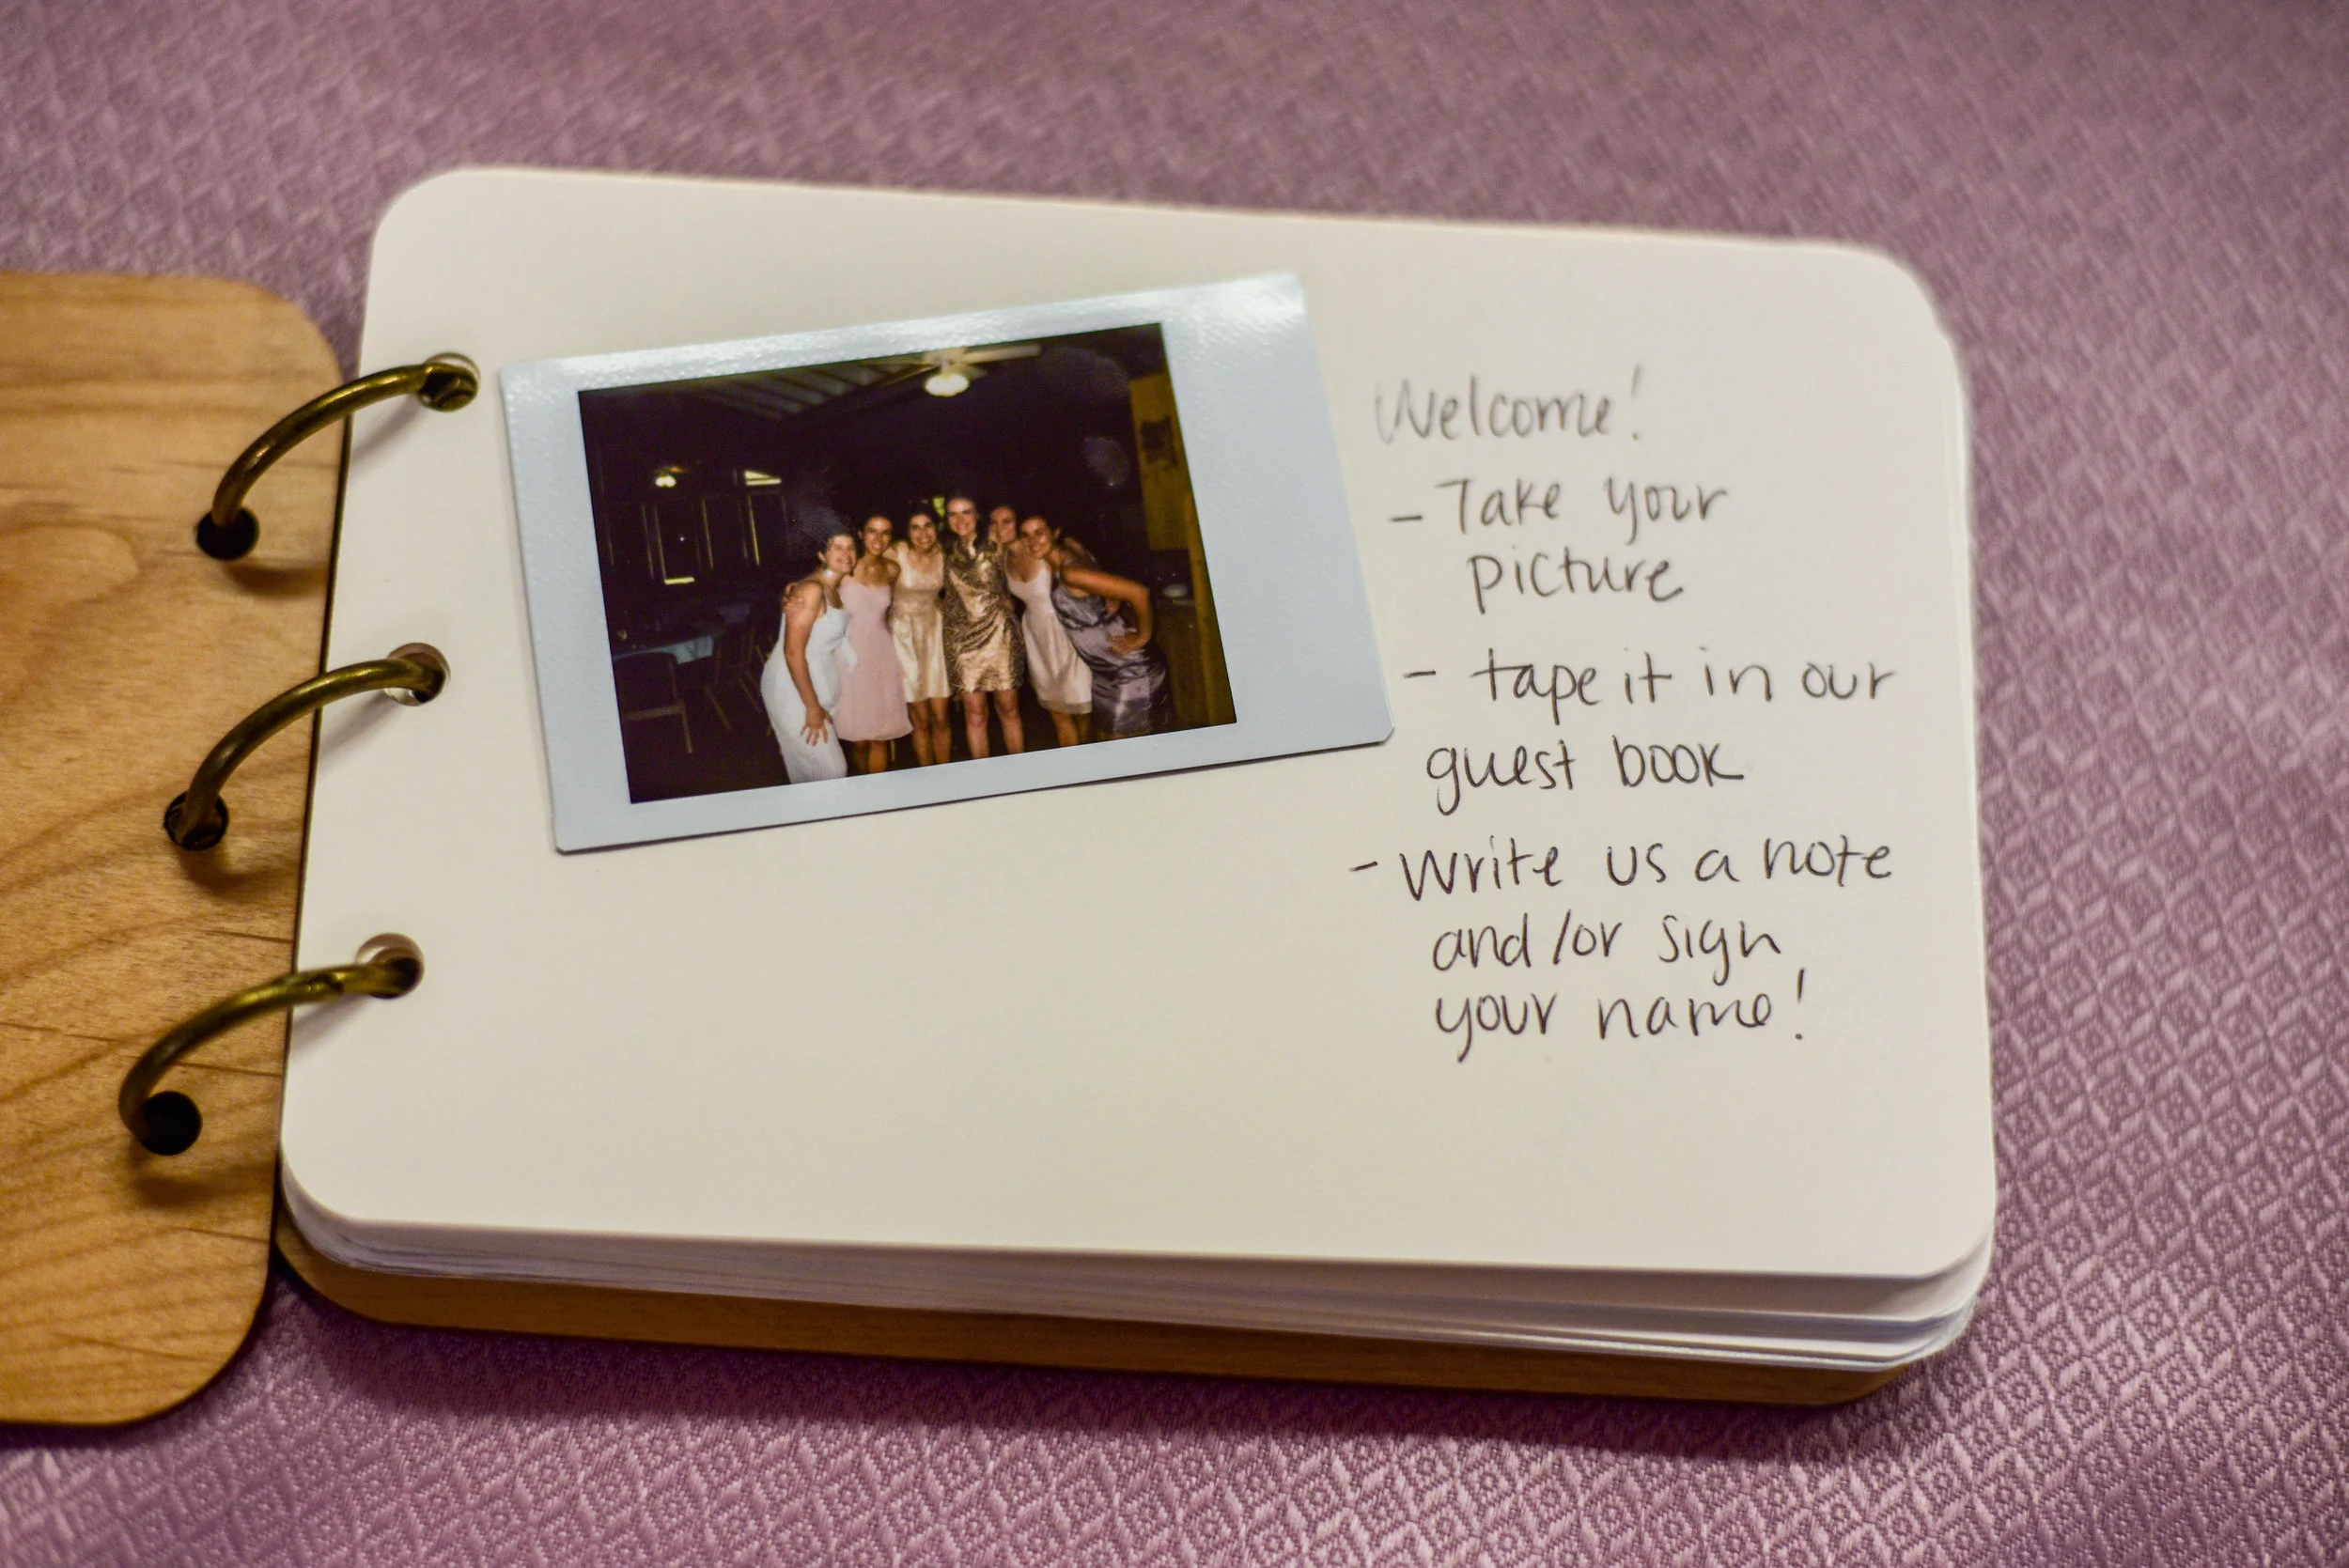 Welcome!
- Take your
picture
- tape it in our
guest book
- Write us a note
and/or sign
your name!